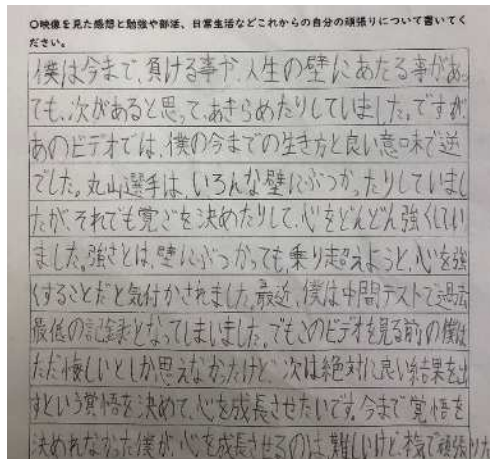 ○映像を見た感想と勉強や部活、日常生活などこれからの自分の頑張りについて書いてく
ださい。
僕は今まで、負ける事や、人生の壁にあたる事があっ
ても、次があると思って、あきらめたりしていました。ですが、
あのビデオでは、僕の今までの生き方と良い意味で逆
でした。丸山選手は、いろんな壁にぶつかったりしていまし
たが、それでも覚ごを決めたりして、心をどんどん強くしてい
ました。強さとは、壁にぶつかっても、乗り超えようと、心を強
くすることだと気付かされました。最近、僕は中間テストで過去
最低の記録となってしまいました。でもこのビデオを見る前の僕は
ただ悔しいとしか思えなかったけど、次は絶対に良い結果を出
すという覚悟を決めて、心を成長させたいです。今まで覚悟を
決めれなかった僕が、心を成長させるのは、難しいけど、本気で頑張りた